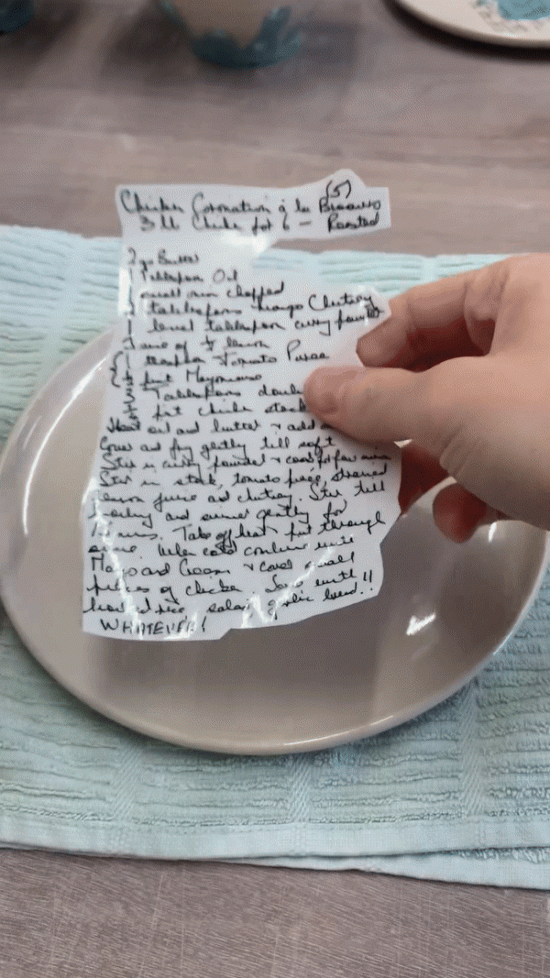 Chicken Coronation a la (5)
3 lb Chicken for 6 – Roasted
2 Butter
1 Tablespoon Oil
1 small onion chopped
tablespoons mango Chutney
1 level tablespoon curry powder
Juice of ½ lemon
1 teaspoon Tomato Puree
½ pint Mayonnaise
3 Tablespoons double
pint chicken stock
Heat oil and butter + add
Cover and fry gently till soft
Stir in curry powder + cook for few mins
Stir in stock, tomato puree, strained
lemon juice and chutney. Stir till
boiling and simmer gently for
10 mins. Take off heat put through
sieve. When cold combine with
Mayo and Cream + cover small
pieces of chicken. Serve with
rice salad garlic bread!!
WHATEVER!